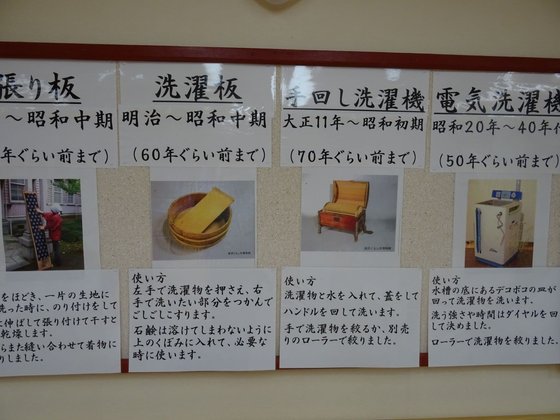 張り板
～昭和中期
年ぐらい前まで)
をほどき、一片の生地に
洗った時に、のり付けをして
に伸ばして張り付けて干すと
乾燥します。
らまた縫い合わせて着物に
りしました。
洗濯板
明治～昭和中期
(60年ぐらい前まで)
使い方
左手で洗濯物を押さえ、右
手で洗いたい部分をつかんで
ごしごしこすります。
石鹸は溶けてしまわないように
上のくぼみに入れて、必要な
時に使います。
手回し洗濯機
大正11年～昭和初期
(70年ぐらい前まで)
使い方
洗濯物と水を入れて、蓋をして
ハンドルを回して洗います。
手で洗濯物を絞るか、別売
りのローラーで絞りました。
電気洗濯機
昭和20年～40年代
(50年ぐらい前まで)
使い方
水槽の底にあるデコボコの皿が
回って洗濯物を洗います。
洗う強さや時間はダイヤルを回
して決めました。
ローラーで洗濯物を絞りました。